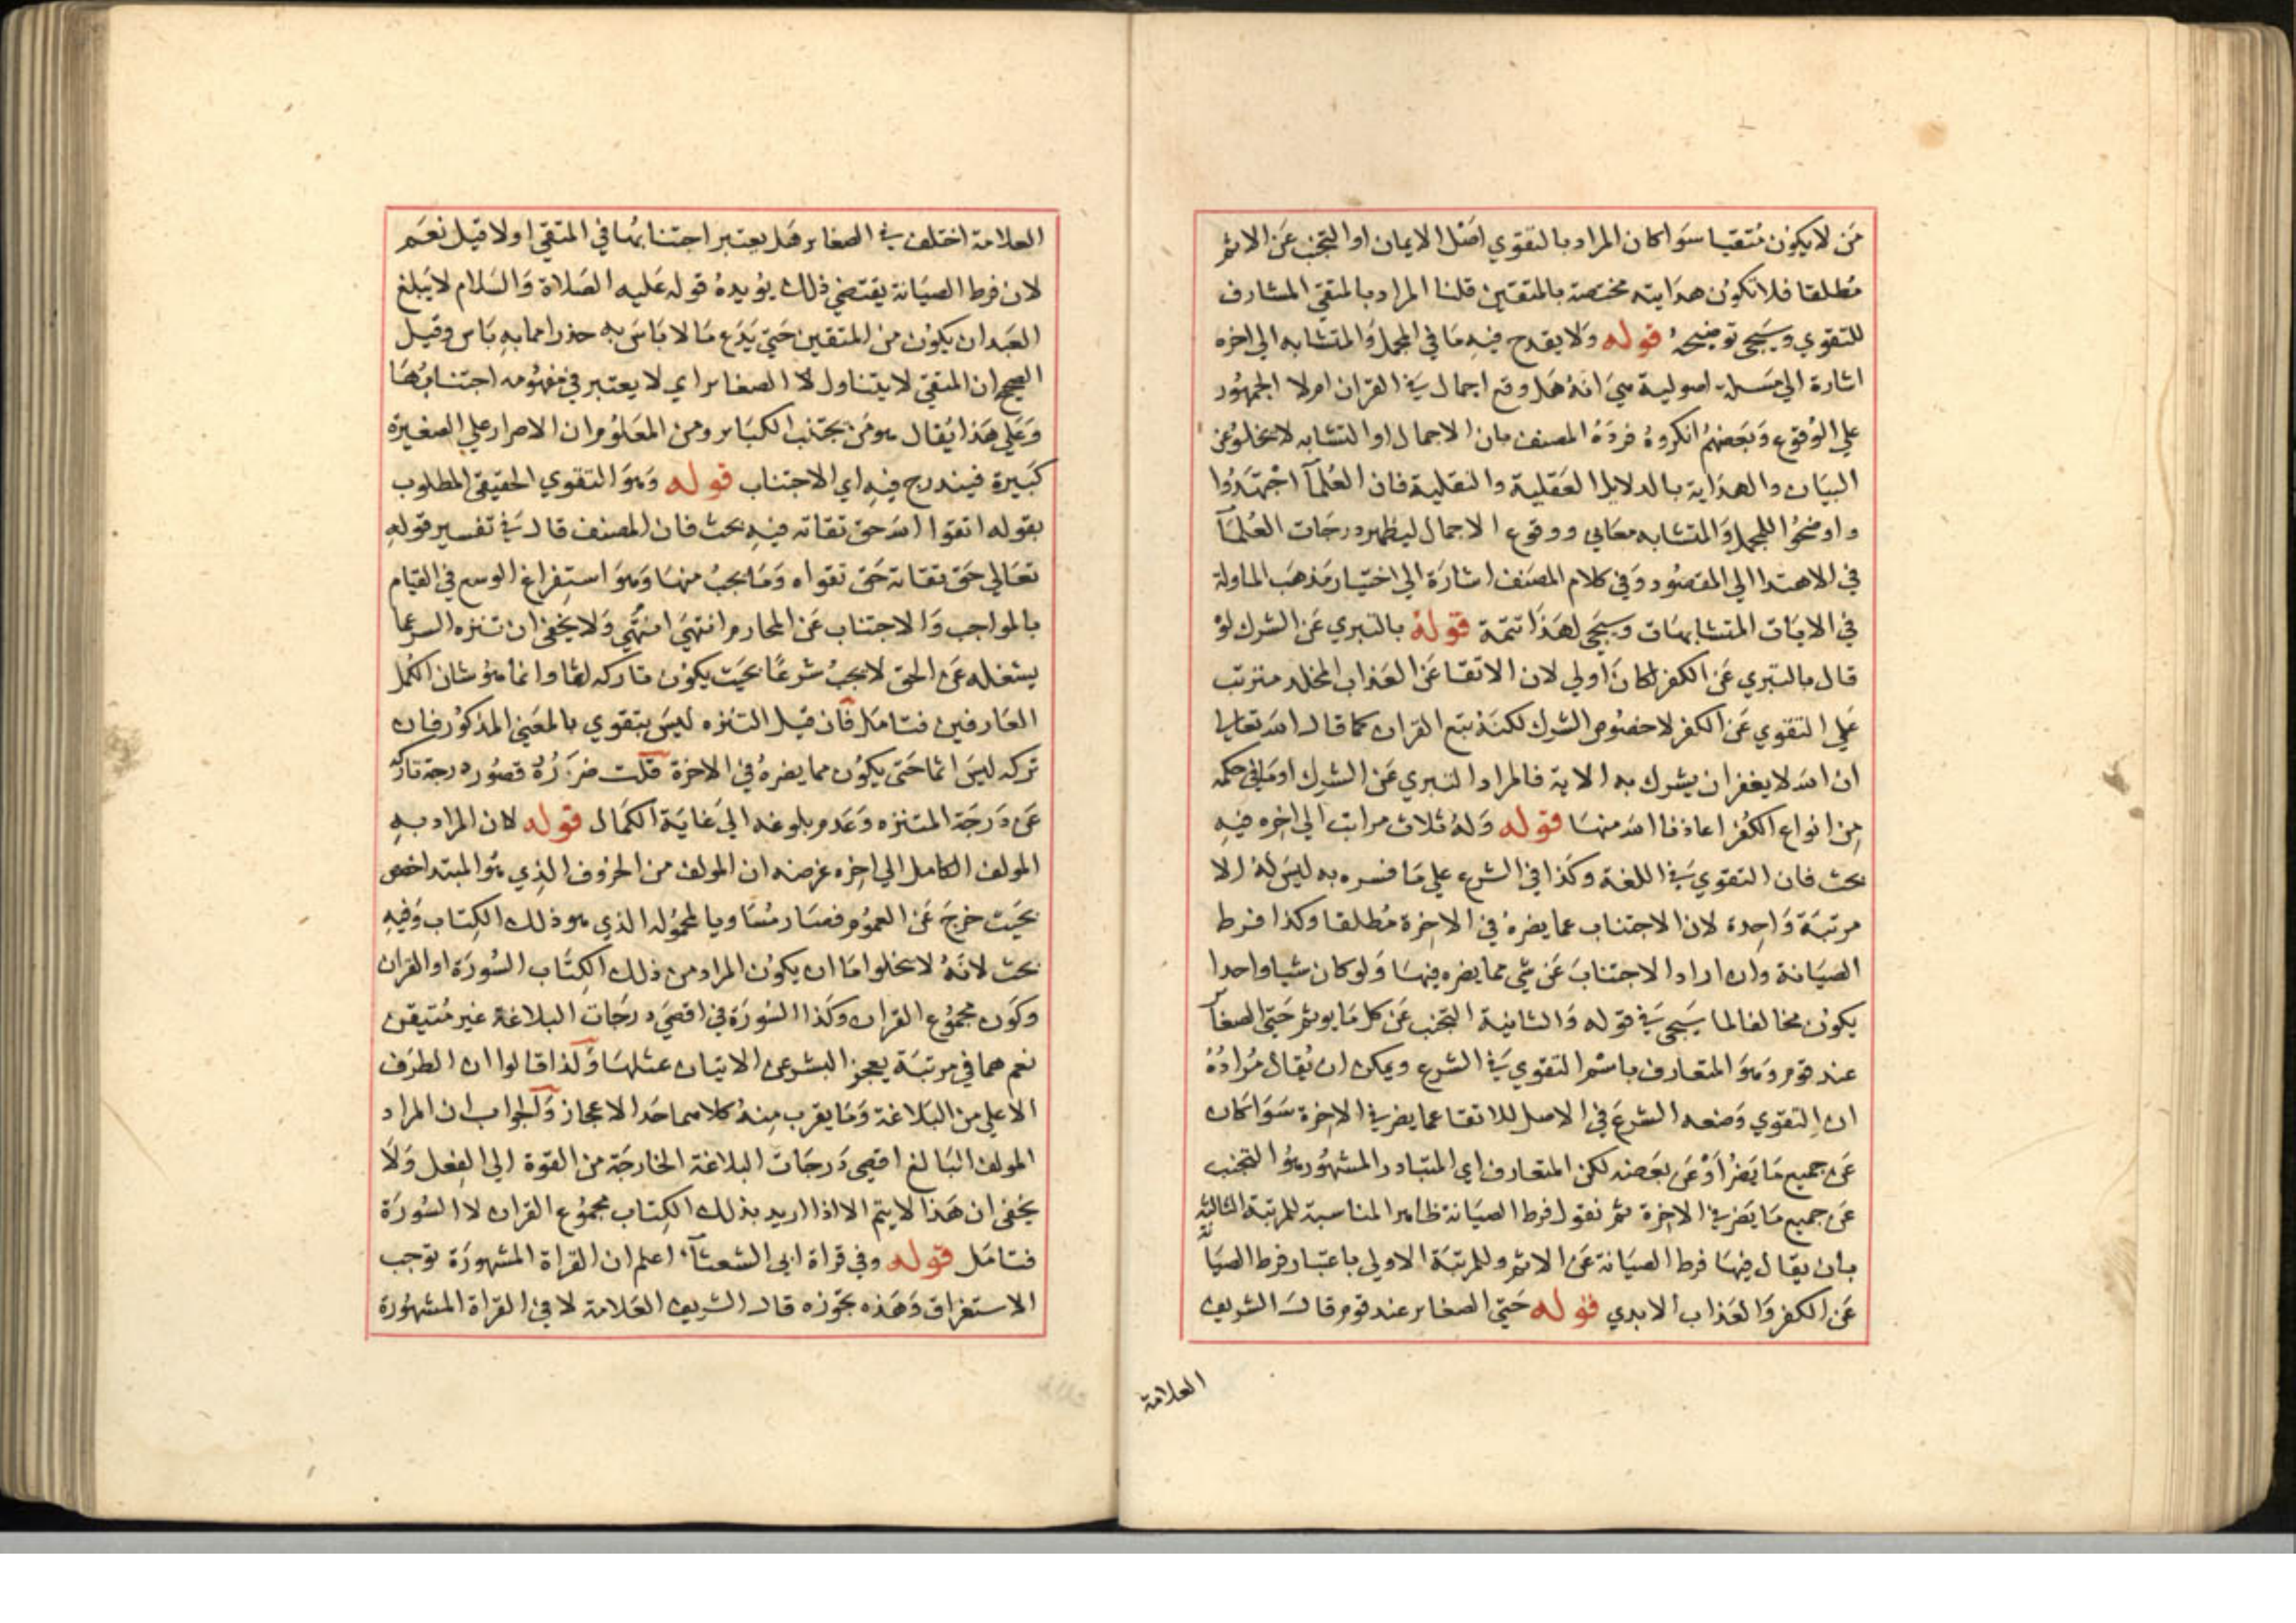 من لا يكون متقيا سوا كان المراد بالتقوي اصل الايمان او التجنب عن الاثم
مطلقا فلا تكون هدايته مختصة بالمتقين قلنا المراد بالمتقي المشارف
للتقوي وسيجي توضيحه قوله ولا يقدح فيه ما في المجمل والمتشابه الي اخره
اشارة الي مسلة اصولية هي انه هل وقع اجمال في القران ام لا الجمهور
علي الوقوع وبعضهم انكروه فرده المصنف بان الاجمال او التشابه لا يخلو عن
البيان والهداية بالدلايل العقلية والنقلية فان العلمآ اجتهدوا
واوضحوا للمجمل والمتشابه معاني ووقوع الاجمال ليظهر درجات العلمآ
في الاهتدا الي المقصود وفي كلام المصنف اشارة الي اختيار مذهب الماولة
في الايات المتشابهات وسيجي لهذا تتمة قوله بالتبري عن الشرك لو
قال بالتبري عن الكفر لكان اولي لان الاتقا عن العذاب المخلد مترتب
علي التقوي عن الكفر لا خصوص الشرك لكنه تبع القران كما قال الله تعالي
ان الله لا يغفر ان يشرك به الاية فالمراد التبري عن الشرك او ما في حكمه
من انواع الكفر اعاذنا الله منها قوله وله ثلاث مراتب الي اخره فيه
بحث فان التقوي في اللغة وكذا في الشرع علي ما فسره به ليس له الا
مرتبة واحدة لان الاجتناب عما يضره في الاخرة مطلقا وكذا فرط
الصيانة وان اراد الاجتناب عن شي مما يضره فيها ولو كان شيا واحدا
يكون مخالفا لما سيجي في قوله والثانية التجنب عن كل ما يوثم حتي الصغاير
عند قوم وهو المتعارف باسم التقوي في الشرع ويمكن ان يقال مراده
ان التقوي وضعه الشرع في الاصل للاتقا عما يضر في الاخرة سوا كان
عن جميع ما يضر او عن بعضه لكن المتعارف اي المتبادر المشهور هو التجنب
عن جميع ما يضر في الاخرة ثم نقول فرط الصيانة ظاهر المناسبة للمرتبة الثالثة
بان يقال فيها فرط الصيانة عن الاثم وللمرتبة الاولي باعتبار فرط الصيانة
عن الكفر والعذاب الابدي قوله حتي الصغاير عند قوم قال الشريف
العلامة
العلامة اختلف في الصغاير هل يعتبر اجتنابها في المتقي اولا قيل نعم
لان فرط الصيانة يقتضي ذلك يويده قوله عليه الصلاة والسلام لا يبلغ
العبد ان يكون من المتقين حتي يدع ما لا باس به حذرا مما به باس وقيل
الصحيح ان المتقي لا يتناول لا الصغاير اي لا يعتبر في مفهومه اجتنابها
وعلي هذا يقال هو من يجتنب الكباير ومن المعلوم ان الاصرار علي الصغيرة
كبيرة فيندرج فيه اي الاجتناب قوله وهو التقوي الحقيقي المطلوب
بقوله اتقوا الله حق تقاته فيه بحث فان المصنف قال في تفسير قوله
تعالي حق تقاته حق تقواه وما يجب منها وهو استفراغ الوسع في القيام
بالمواجب والاجتناب عن المحارم انتهي انتهي ولا يخفي ان تنزه السر عما
يشغله عن الحق لا يجب شرعا بحيث يكون تاركه اثما وانما هو شان الكمل
العارفين فتامل فان قيل التنزه ليس بتقوي بالمعني المذكور فان
تركه ليس اثما حتي يكون مما يضره في الاخرة قلت ضرره قصور درجة تاركه
عن درجة المتنزه وعدم بلوغه الي غاية الكمال قوله لان المراد به
المولف الكامل الي اخره غرضه ان المولف من الحروف الذي هو المبتدا خص
بحيث خرج عن العموم فصار مساويا لمحموله الذي هو ذلك الكتاب وفيه
بحث لانه لا يخلو اما ان يكون المراد من ذلك الكتاب السورة او القران
وكون مجموع القران وكذا السورة في اقصي درجات البلاغة غير متيقن
نعم هما في مرتبة يعجز البشر عن الاتيان بمثلها ولذا قالوا ان الطرف
الاعلي من البلاغة وما يقرب منه كلاهما حد الاعجاز والجواب ان المراد
المولف البالغ اقصي درجات البلاغة الخارجة من القوة الي الفعل ولا
يخفي ان هذا لا يتم الا اذا اريد بذلك الكتاب مجموع القران لا السورة
فتامل قوله وفي قراة ابي الشعثآء اعلم ان القراة المشهورة توجب
الاستغراق وهذه تجوزه قال الشريف العلامة لا في القراة المشهورة